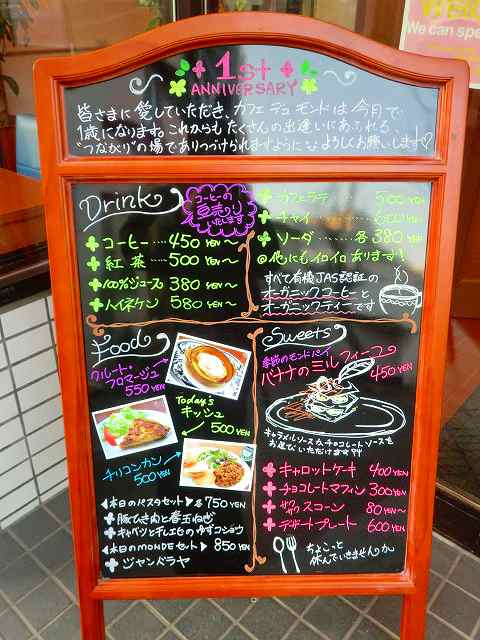 We can spe
1st
ANNIVERSARY
皆さまに愛していただき、カフェ デュ モンドは今月で
1歳になります。これからもたくさんの出逢いにあふれる、
"つながり"の場でありつづけられますように♡よろしくお願いします♡
Drink
コーヒーの
豆売り
いたします
コーヒー …… 450 YEN〜
紅茶 …… 500 YEN〜
100%ジュース 380 YEN〜
ハイネケン 580 YEN〜
カフェラテ 500 YEN
チャイ …… 600 YEN
ソーダ …… 各 380 YEN
@他にもイロイロあります!
すべて有機JAS認証の
オーガニックコーヒーと
オーガニックティーです
Food
クルート・
フロマージュ
550 YEN
Today's
キッシュ
500 YEN
チリコンカン
500 YEN
◀本日のパスタセット▶各750 YEN
豚ひき肉と春玉ねぎ
キャベツとドレエビのゆずコショウ
◀本日のMONDEセット▶850 YEN
ジャンバラヤ
Sweets
季節のモンドパイ
バナナのミルフィーユ
450 YEN
キャラメルソース or チョコレートソースを
お選びいただけます!!
キャロットケーキ 400 YEN
チョコレートマフィン 300 YEN
サクサクスコーン 80 YEN〜
デザートプレート 600 YEN
ちょこっと
休んでいきませんか